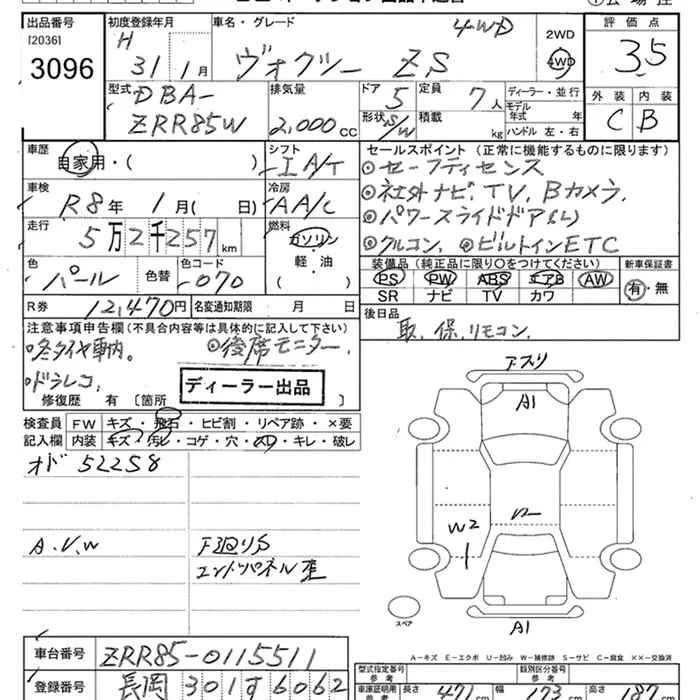 出品番号 初度登録年月 車名・グレード 評価点
[2036]
3096 H 31年 1月 ヴォクシー ZS 4WD 2WD 4WD 3.5
型式 DBA-ZRR85W 排気量 2,000cc ドア 5 定員 7人 ディーラー・並行 外装 内装
形状 S/W 積載 kg モデル年式 年式 ハンドル 左・右 C B
車歴 自家用・( ) シフト IA/T セールスポイント (正常に機能するものに限ります)
◎セーフティセンス
車検 R8年 1月( 日) 冷房 AA/C ◎社外ナビ、TV、Bカメラ、
◎パワースライドドア(L)
走行 5万2千257km 燃料 ガソリン・軽・油 ◎クルコン、◎ビルトインETC
色 パール 色替 色コード 070 装備品 (純正品に限り○をつけてください) 新車保証書
PS PW ABS エアB AW 有・無
SR ナビ TV カワ
R券 12,470円 名変通知期限 月 日 後日品
注意事項申告欄(不具合内容等は具体的に記入して下さい) 取、保、リモコン.
・冬タイヤ車内。 ◎後席モニター、
・ドラレコ、 ディーラー出品
修復歴 有 〔箇所
検査員 FW キズ・飛石・ヒビ割・リペア跡・×要
記入欄 内装 キズ・汚レ・コゲ・穴・スレ・キレ・破レ
オド 52258
A.U.W 下回りS
エンドパネル歪
アスリ
A1
W2
A1
スペア
A−キズ E−エクボ U−凹み W−補修跡 S−サビ C−腐食 ××−交換済
車台番号 ZRR85-0115511 型式指定番号 参考 類別区分番号 参考
登録番号 長岡 301す6062 車庫証明用 参考 長さ 471cm 幅 173cm 高さ 187cm